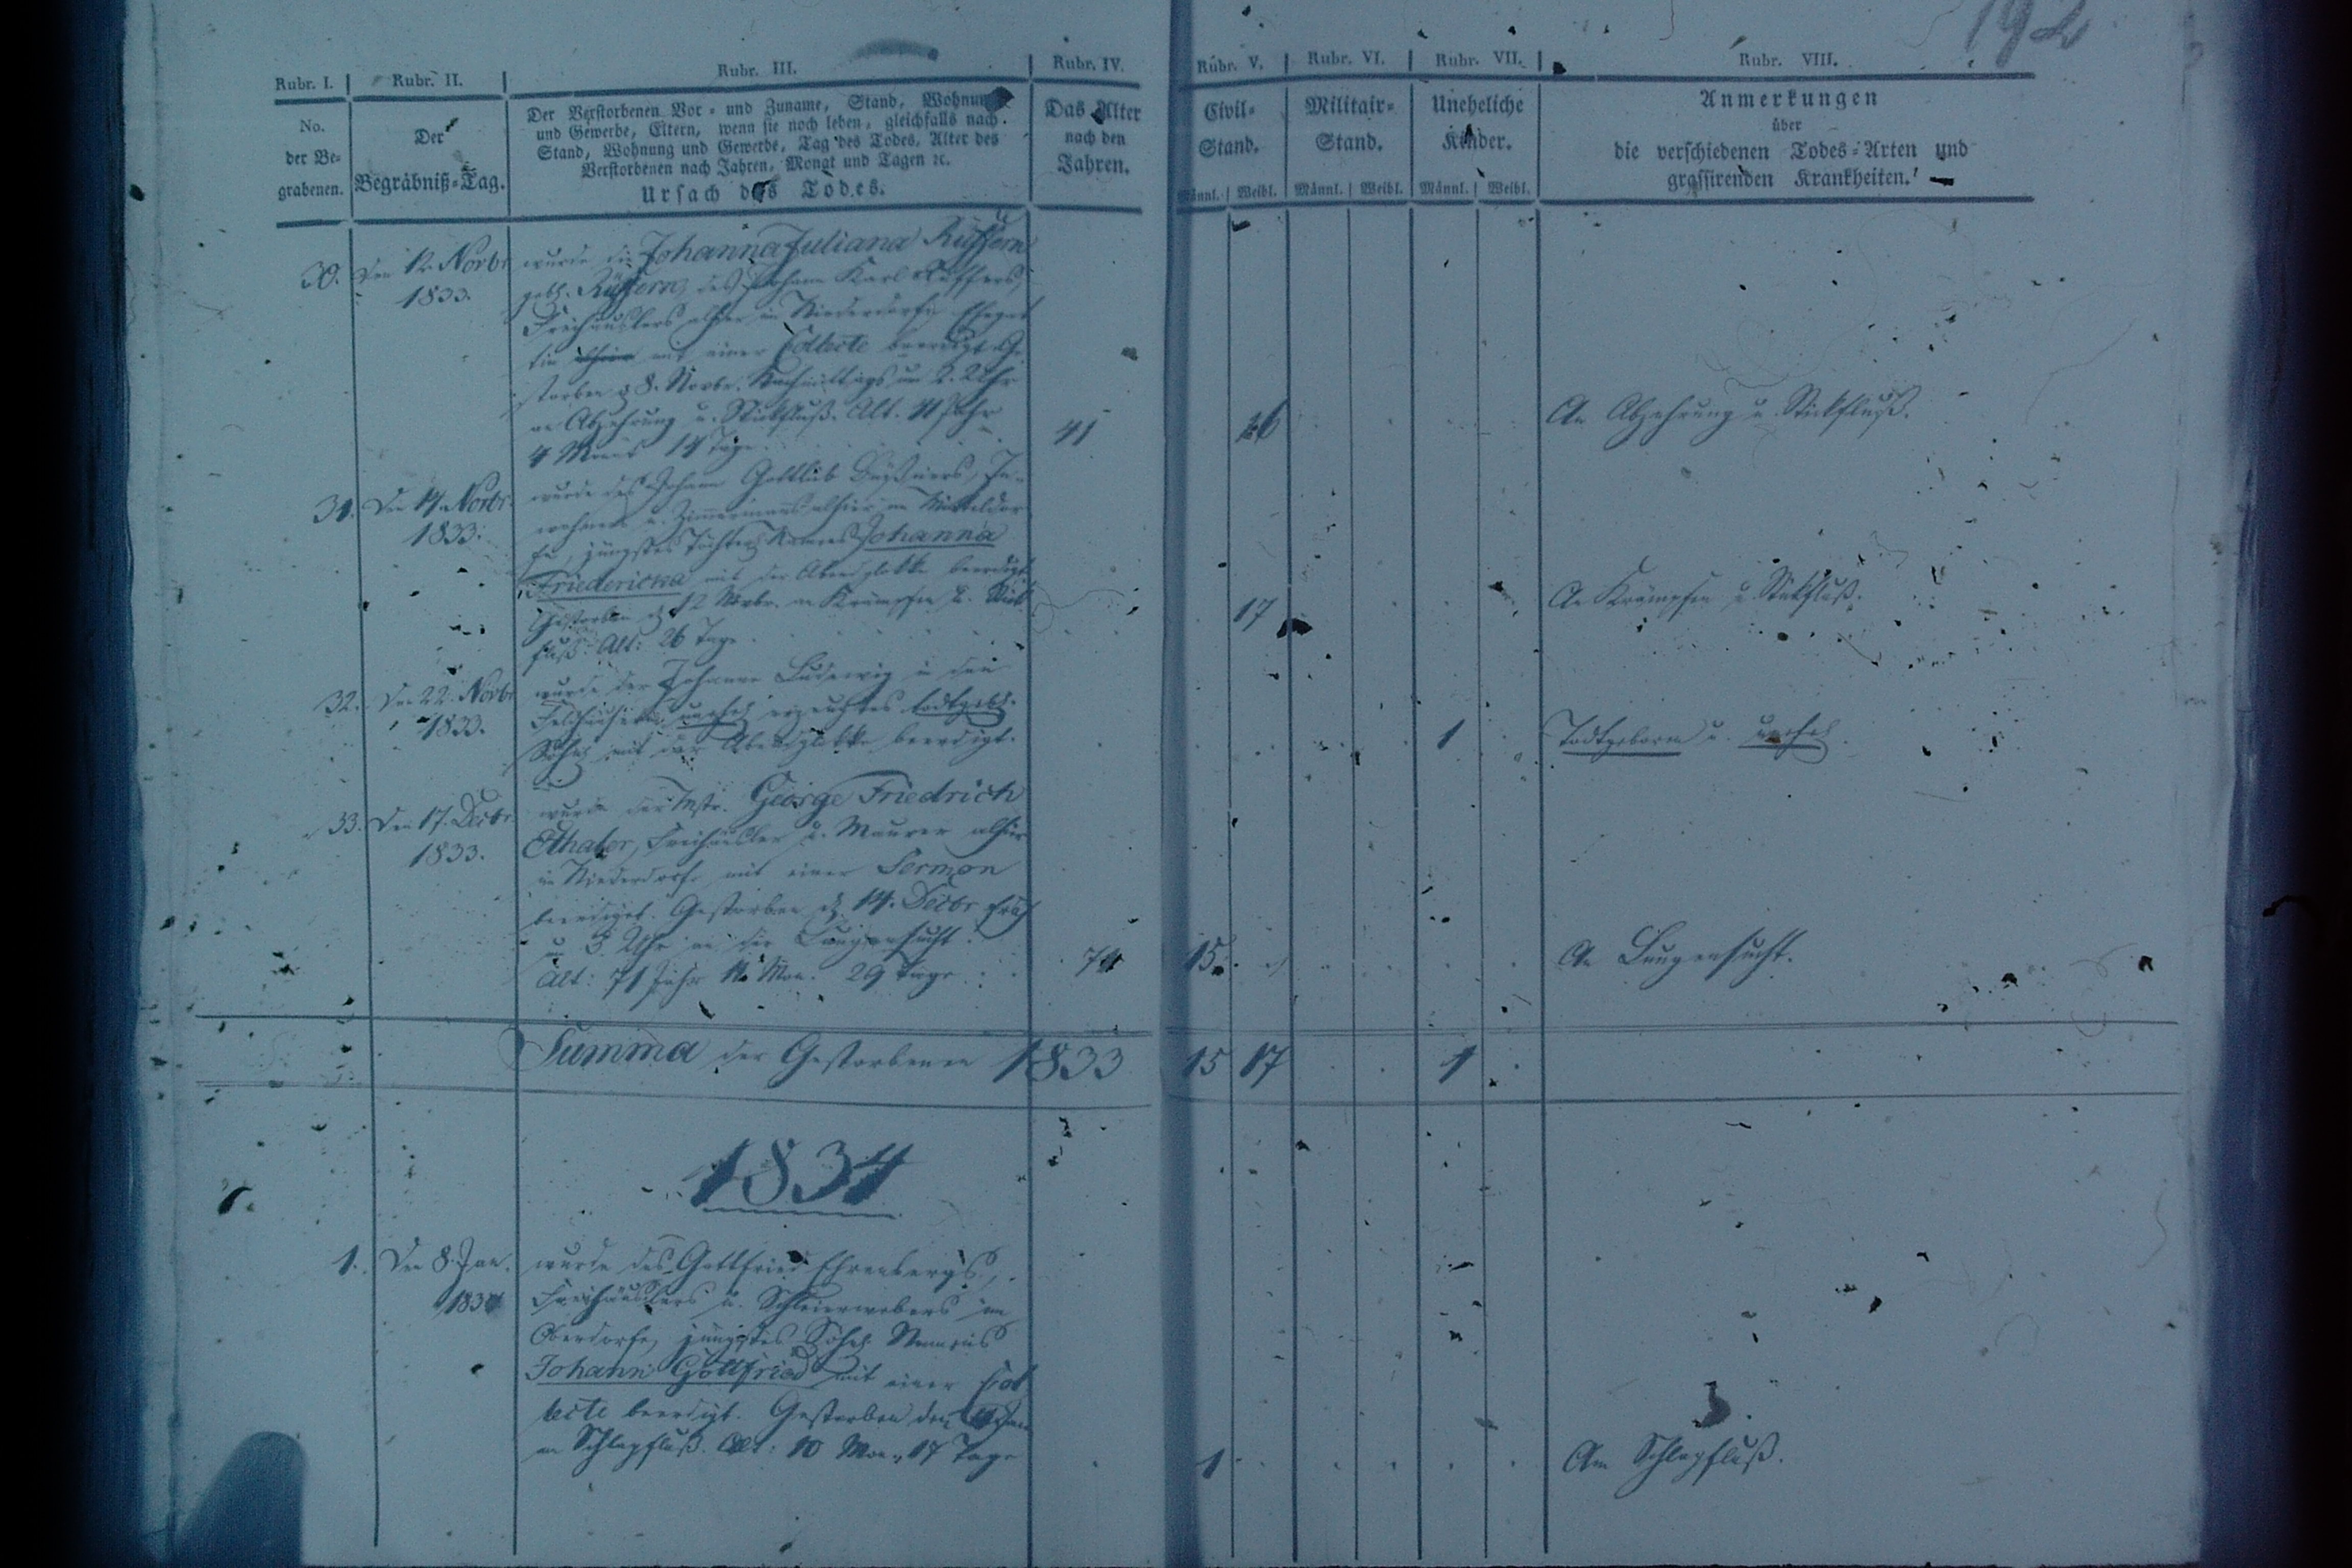 192
Rubr. I. Rubr. II. Rubr. III. Rubr. IV. Rubr. V. Rubr. VI. Rubr. VII. Rubr. VIII.
No.
der Be-
grabenen.
Der
Begräbniß-Tag.
Der Verstorbenen Vor- und Zuname, Stand, Wohnung
und Gewerbe, Eltern, wenn sie noch leben, gleichfalls nach
Stand, Wohnung und Gewerbe, Tag des Todes, Alter des
Verstorbenen nach Jahren, Monat und Tagen ꝛc.
Ursach des Todes.
Das Alter
nach den
Jahren.
Civil-
Stand.
Männl. Weibl.
Militair-
Stand.
Männl. Weibl.
Uneheliche
Kinder.
Männl. Weibl.
Anmerkungen
über
die verschiedenen Todes-Arten und
grassirenden Krankheiten.
30. Den 12 Novbr. wurde die Johanna Juliana Rüffern
1833. gebh. Rüffern, des Johann Karl Rüffers,
Freihäuslers alhier im Niederdorfe Ehegat
tin mit einer Collecte beerdigt. Ge
storben d 8. Novbr. Nachmittags um 2. Uhr
an Abzehrung u. Stickfluß. Alt. 41 Jahr
4 Monat 14 Tage.
41 16 An Abzehrung u. Stickfluß.
31. Den 14. Novbr. wurde des Johann Gottlieb In-
1833. wohners u. Zimmermanns alhier im Mitteldor
fe, jüngstes Töchterl. Namens Johanna
Friedericka mit der Abendglokke beerdigt
Gestorben d 12 Novbr. an Krämpfen u. Stick
fluß. Alt: 26 Tage.
17 An Krämpfen u. Stickfluß.
32. Den 22. Novbr. wurde der Johanne Ludewig u den
1833. unehel. erzeugtes todtgeb.
Söhnl. mit der Abendglokke beerdigt.
1 Todtgeboren u. unehel.
33. Den 17. Decbr. wurde der Mstr. George Friedrich
1833. Freihäusler u. Maurer alhier
im Niederdorfe mit einer Sermon
beerdiget. Gestorben d. 14. Decbr. früh
um 3 Uhr an der Lungensucht.
Alt: 71 Jahr Mon. 29 Tage.
71 15. An Lungensucht.
Summa der Gestorbenen 1833 15 17 1
1834
1. Den 8. Jan. wurde des Gottfried Ehrenbergs,
1834 Freihäuslers u. Schleierwebers im
Oberdorfe, jüngstes Söhnl. Namens
Johann Gottfried mit einer Col
lecte beerdigt. Gestorben den Jan
am Schlagfluß. Alt: 10 Mon. 17 Tage
1 Am Schlagfluß.